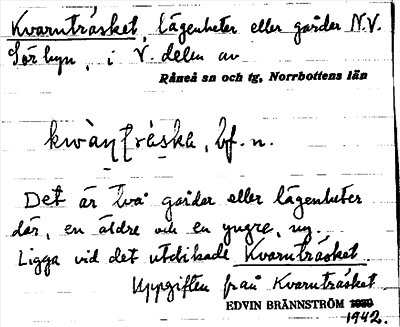 Kvarnträsket, lägenheter eller gårdar N.V.
Sörbyn, i V. delen av
Råneå sn och tg, Norrbottens län
bf. n.
Det är två gårdar eller lägenheter
där, en äldre och en yngre, ny.
Ligga vid det utdikade Kvarnträsket.
Uppgiften från Kvarnträsket.
EDVIN BRÄNNSTRÖM
1942.